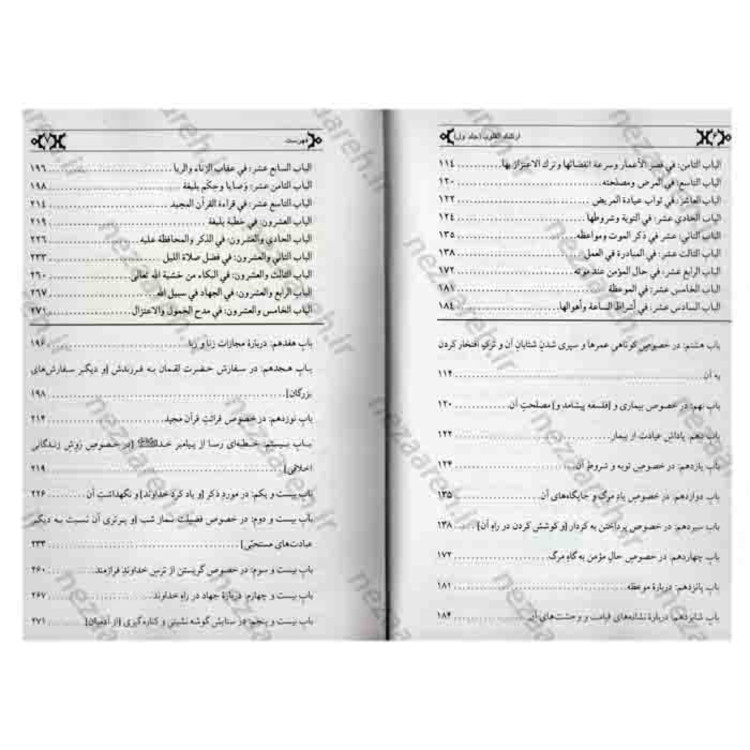 ۶
ارشاد القلوب (جلد اول)
الباب الثامن: في قصر الأعمار وسرعة انقضائها وترك الاعتزاز بها ........ ۱۱۴
الباب التاسع: في المرض ومصلحته ........ ۱۲۰
الباب العاشر: في ثواب عيادة المريض ........ ۱۲۲
الباب الحادي عشر: في التوبة وشروطها ........ ۱۲۴
الباب الثاني عشر: في ذكر الموت ومواعظه ........ ۱۳۵
الباب الثالث عشر: في المبادرة في العمل ........ ۱۳۸
الباب الرابع عشر: في حال المؤمن عند موته ........ ۱۷۲
الباب الخامس عشر: في الموعظة ........ ۱۸۱
الباب السادس عشر: في أشراط الساعة وأهوالها ........ ۱۸۴
باب هشتم: در خصوصِ کوتاهی عمرها و سپری شدنِ شتابانِ آن و ترکِ افتخار کردن
به آن ........ ۱۱۴
باب نهم: در خصوص بیماری و [فلسفه پیشامد و] مصلحتِ آن ........ ۱۲۰
باب دهم: پاداش عیادت از بیمار ........ ۱۲۲
باب یازدهم: در خصوصِ توبه و شروطِ آن ........ ۱۲۴
باب دوازدهم: در خصوصِ یادِ مرگ و جایگاه‌های آن ........ ۱۳۵
باب سیزدهم: در خصوص پرداختن به کردار [و کوشش کردن در راهِ آن] ........ ۱۳۸
باب چهاردهم: در خصوصِ حالِ مؤمن به گاهِ مرگ ........ ۱۷۲
باب پانزدهم: دربارهٔ موعظه ........ ۱۸۱
باب شانزدهم: دربارهٔ نشانه‌های قیامت و وحشت‌های آن ........ ۱۸۴
فهرست
۷
الباب السابع عشر: في عقاب الزناء والربا ........ ۱۹۶
الباب الثامن عشر: وصايا وحِكَم بليغة ........ ۱۹۸
الباب التاسع عشر: في قراءة القرآن المجيد ........ ۲۱۴
الباب العشرون: في خطبة بليغة ........ ۲۱۹
الباب الحادي والعشرون: في الذكر والمحافظة عليه ........ ۲۲۶
الباب الثاني والعشرون: في فضل صلاة الليل ........ ۲۳۳
الباب الثالث والعشرون: في البكاء من خشية الله تعالى ........ ۲۶۰
الباب الرابع والعشرون: في الجهاد في سبيل الله ........ ۲۶۷
الباب الخامس والعشرون: في مدح الخمول والاعتزال ........ ۲۷۱
باب هفدهم: دربارهٔ مجازات زنا و ربا ........ ۱۹۶
باب هجدهم: در سفارش حضرت لقمان به فرزندش [و دیگر سفارش‌های
بزرگان] ........ ۱۹۸
باب نوزدهم: در خصوص قرائتِ قرآن مجید ........ ۲۱۴
باب بیستم: خطبه‌ای رسا از پیامبر خدا [در خصوصِ روشِ زندگانی
اخلاقی] ........ ۲۱۹
باب بیست و یکم: در موردِ ذکر [و یاد کردِ خداوند] و نگهداشتِ آن ........ ۲۲۶
باب بیست و دوم: در خصوص فضیلت نماز شب [و برتری آن نسبت به دیگر
عبادت‌های مستحبّی] ........ ۲۳۳
باب بیست و سوم: در خصوص گریستن از ترسِ خداوندِ فرازمند ........ ۲۶۰
باب بیست و چهارم: دربارهٔ جهاد در راهِ خداوند ........ ۲۶۷
باب بیست و پنجم: در ستایش گوشه نشینی و کناره‌گیری [از آدمیان] ........ ۲۷۱
nezaareh.ir